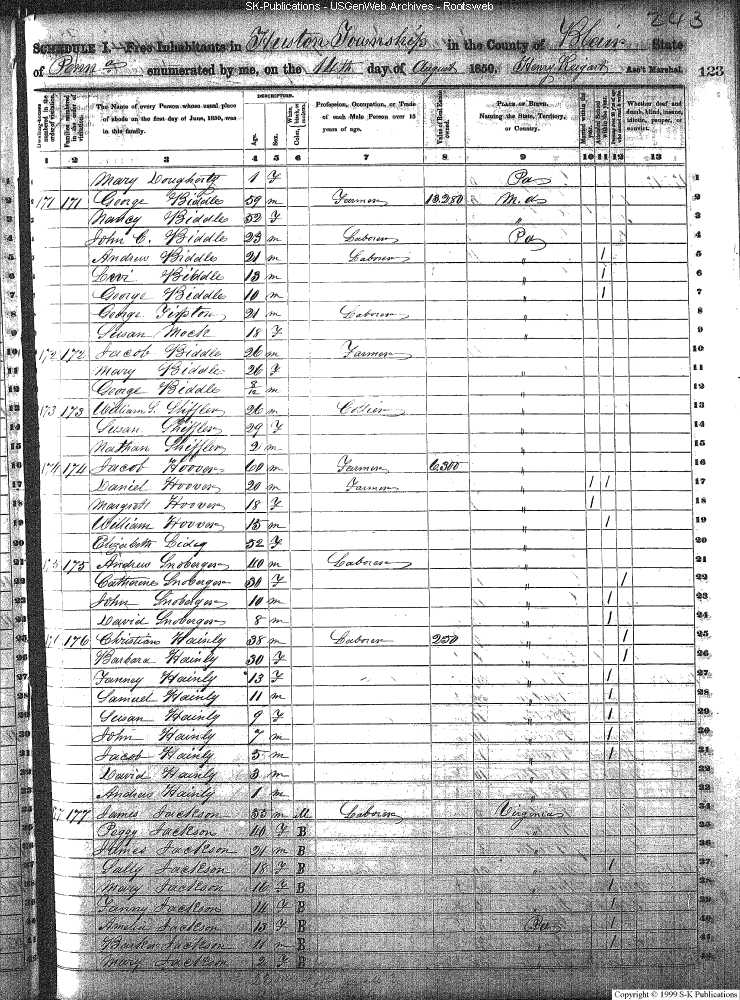 SK-Publications - USGenWeb Archives - Rootsweb
243
SCHEDULE I.—Free Inhabitants in Huston Township in the County of Blair State
of Penna enumerated by me, on the 14th day of August 1850. Henry Reigart Ass't Marshal. 123
Dwelling-houses numbered in the order of visitation. Families numbered in the order of visitation. The Name of every Person whose usual place of abode on the first day of June, 1850, was in this family. DESCRIPTION. Age. Sex. Color, Profession, Occupation, or Trade of each Male Person over 15 years of age. Value of Real Estate owned. PLACE OF BIRTH. Naming the State, Territory, or Country. Married within the year. Whether deaf and dumb, blind, insane, idiotic, pauper, or convict.
1 2 3 4 5 6 7 8 9 10 11 12 13
1 Mary Dougherty 1 F Pa 1
171 171 George Biddle 59 m Farmer 13.280 M.d 2
Nancy Biddle 52 F " 3
John C. Biddle 23 m Laborer Pa 4
Andrew Biddle 21 m Laborer " / 5
Levi Biddle 13 m " / 6
George Biddle 10 m " / 7
George 21 m Laborer " 8
Susan Mock 18 F " 9
172 172 Jacob Biddle 26 m Farmer " 10
Mary Biddle 26 F " 11
George Biddle 8/12 m " 12
173 173 William S. Shiffler 26 m " 13
Susan Shiffler 29 F " 14
Nathan Shiffler 2 m " 15
174 174 Jacob Hoover 60 m Farmer 6.300 " 16
Daniel Hoover 20 m Farmer " / / 17
Margrett Hoover 18 F " / 18
William Hoover 15 m " / 19
Elizabeth 52 F " 20
175 175 Andrew Snoberger 40 m Laborer " 21
Catharine Snoberger 30 F " / 22
John Snoberger 10 m " / 23
David Snoberger 8 m " / 24
176 Christian Hainly 38 m Laborer 250 " / 25
Barbara Hainly 30 F " / 26
Fanney Hainly 13 F " / 27
Samuel Hainly 11 m " / 28
Susan Hainly 9 F " / 29
John Hainly 7 m " / 30
Jacob Hainly 5 m " / 31
David Hainly 3 m " 32
Andrew Hainly 1 m " 33
177 James Jackson 55 m M Laborer Virginia 34
Peggy Jackson 40 F B " 35
James Jackson 21 m B " 36
Sally Jackson 18 F B " / 37
Mary Jackson 16 F B " / 38
Fanny Jackson 14 F B " / 39
Amelia Jackson 13 F B Pa / 40
Jackson 11 m B " / 41
Mary Jackson 2 F B " 42
Copyright © 1999 S-K Publications